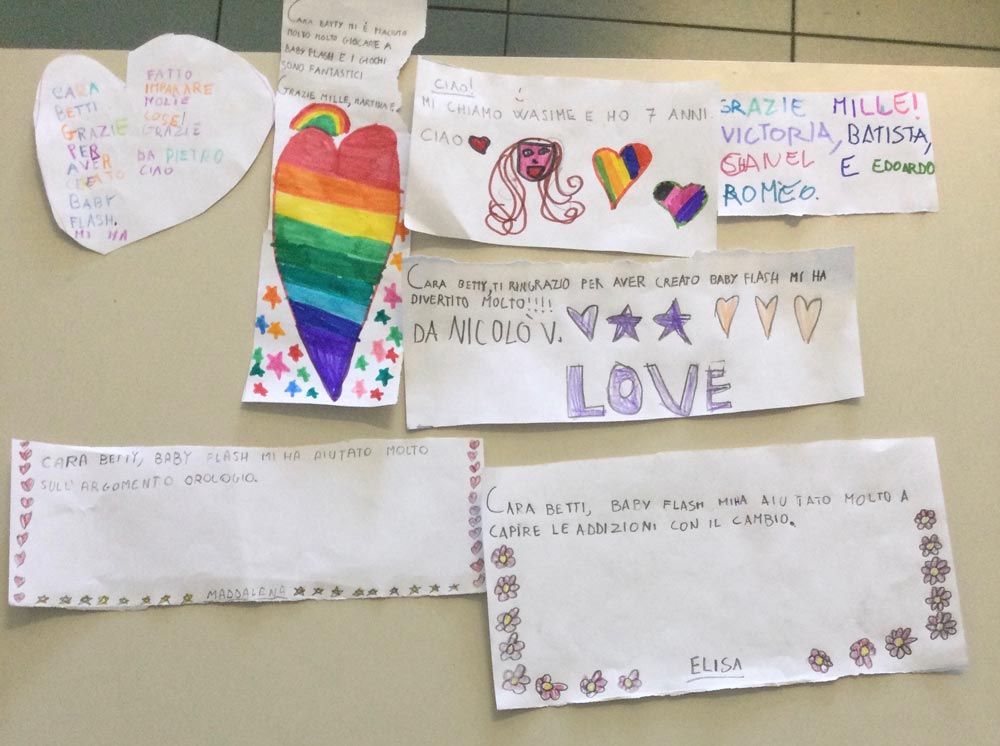 CARA
BETTI
GRAZIE
PER
AVER
CREATO
BABY
FLASH.
MI HA
FATTO
IMPARARE
MOLTE
COSE!
GRAZIE
DA PIETRO
CIAO
CARA BETTY MI È PIACIUTO
MOLTO MOLTO GIOCARE A
BABY FLASH E I GIOCHI
SONO FANTASTICI
GRAZIE MILLE, MARTINA E.
CIAO!
MI CHIAMO WASIME E HO 7 ANNI.
CIAO
GRAZIE MILLE!
VICTORIA, BATISTA,
CHANEL E EDOARDO
ROMEO.
CARA BETTY, TI RINGRAZIO PER AVER CREATO BABY FLASH MI HA
DIVERTITO MOLTO!!!!
DA NICOLÒ V.
LOVE
CARA BETTY, BABY FLASH MI HA AIUTATO MOLTO
SULL'ARGOMENTO OROLOGIO.
MADDALENA
CARA BETTI, BABY FLASH MIHA AIUTATO MOLTO A
CAPIRE LE ADDIZIONI CON IL CAMBIO.
ELISA